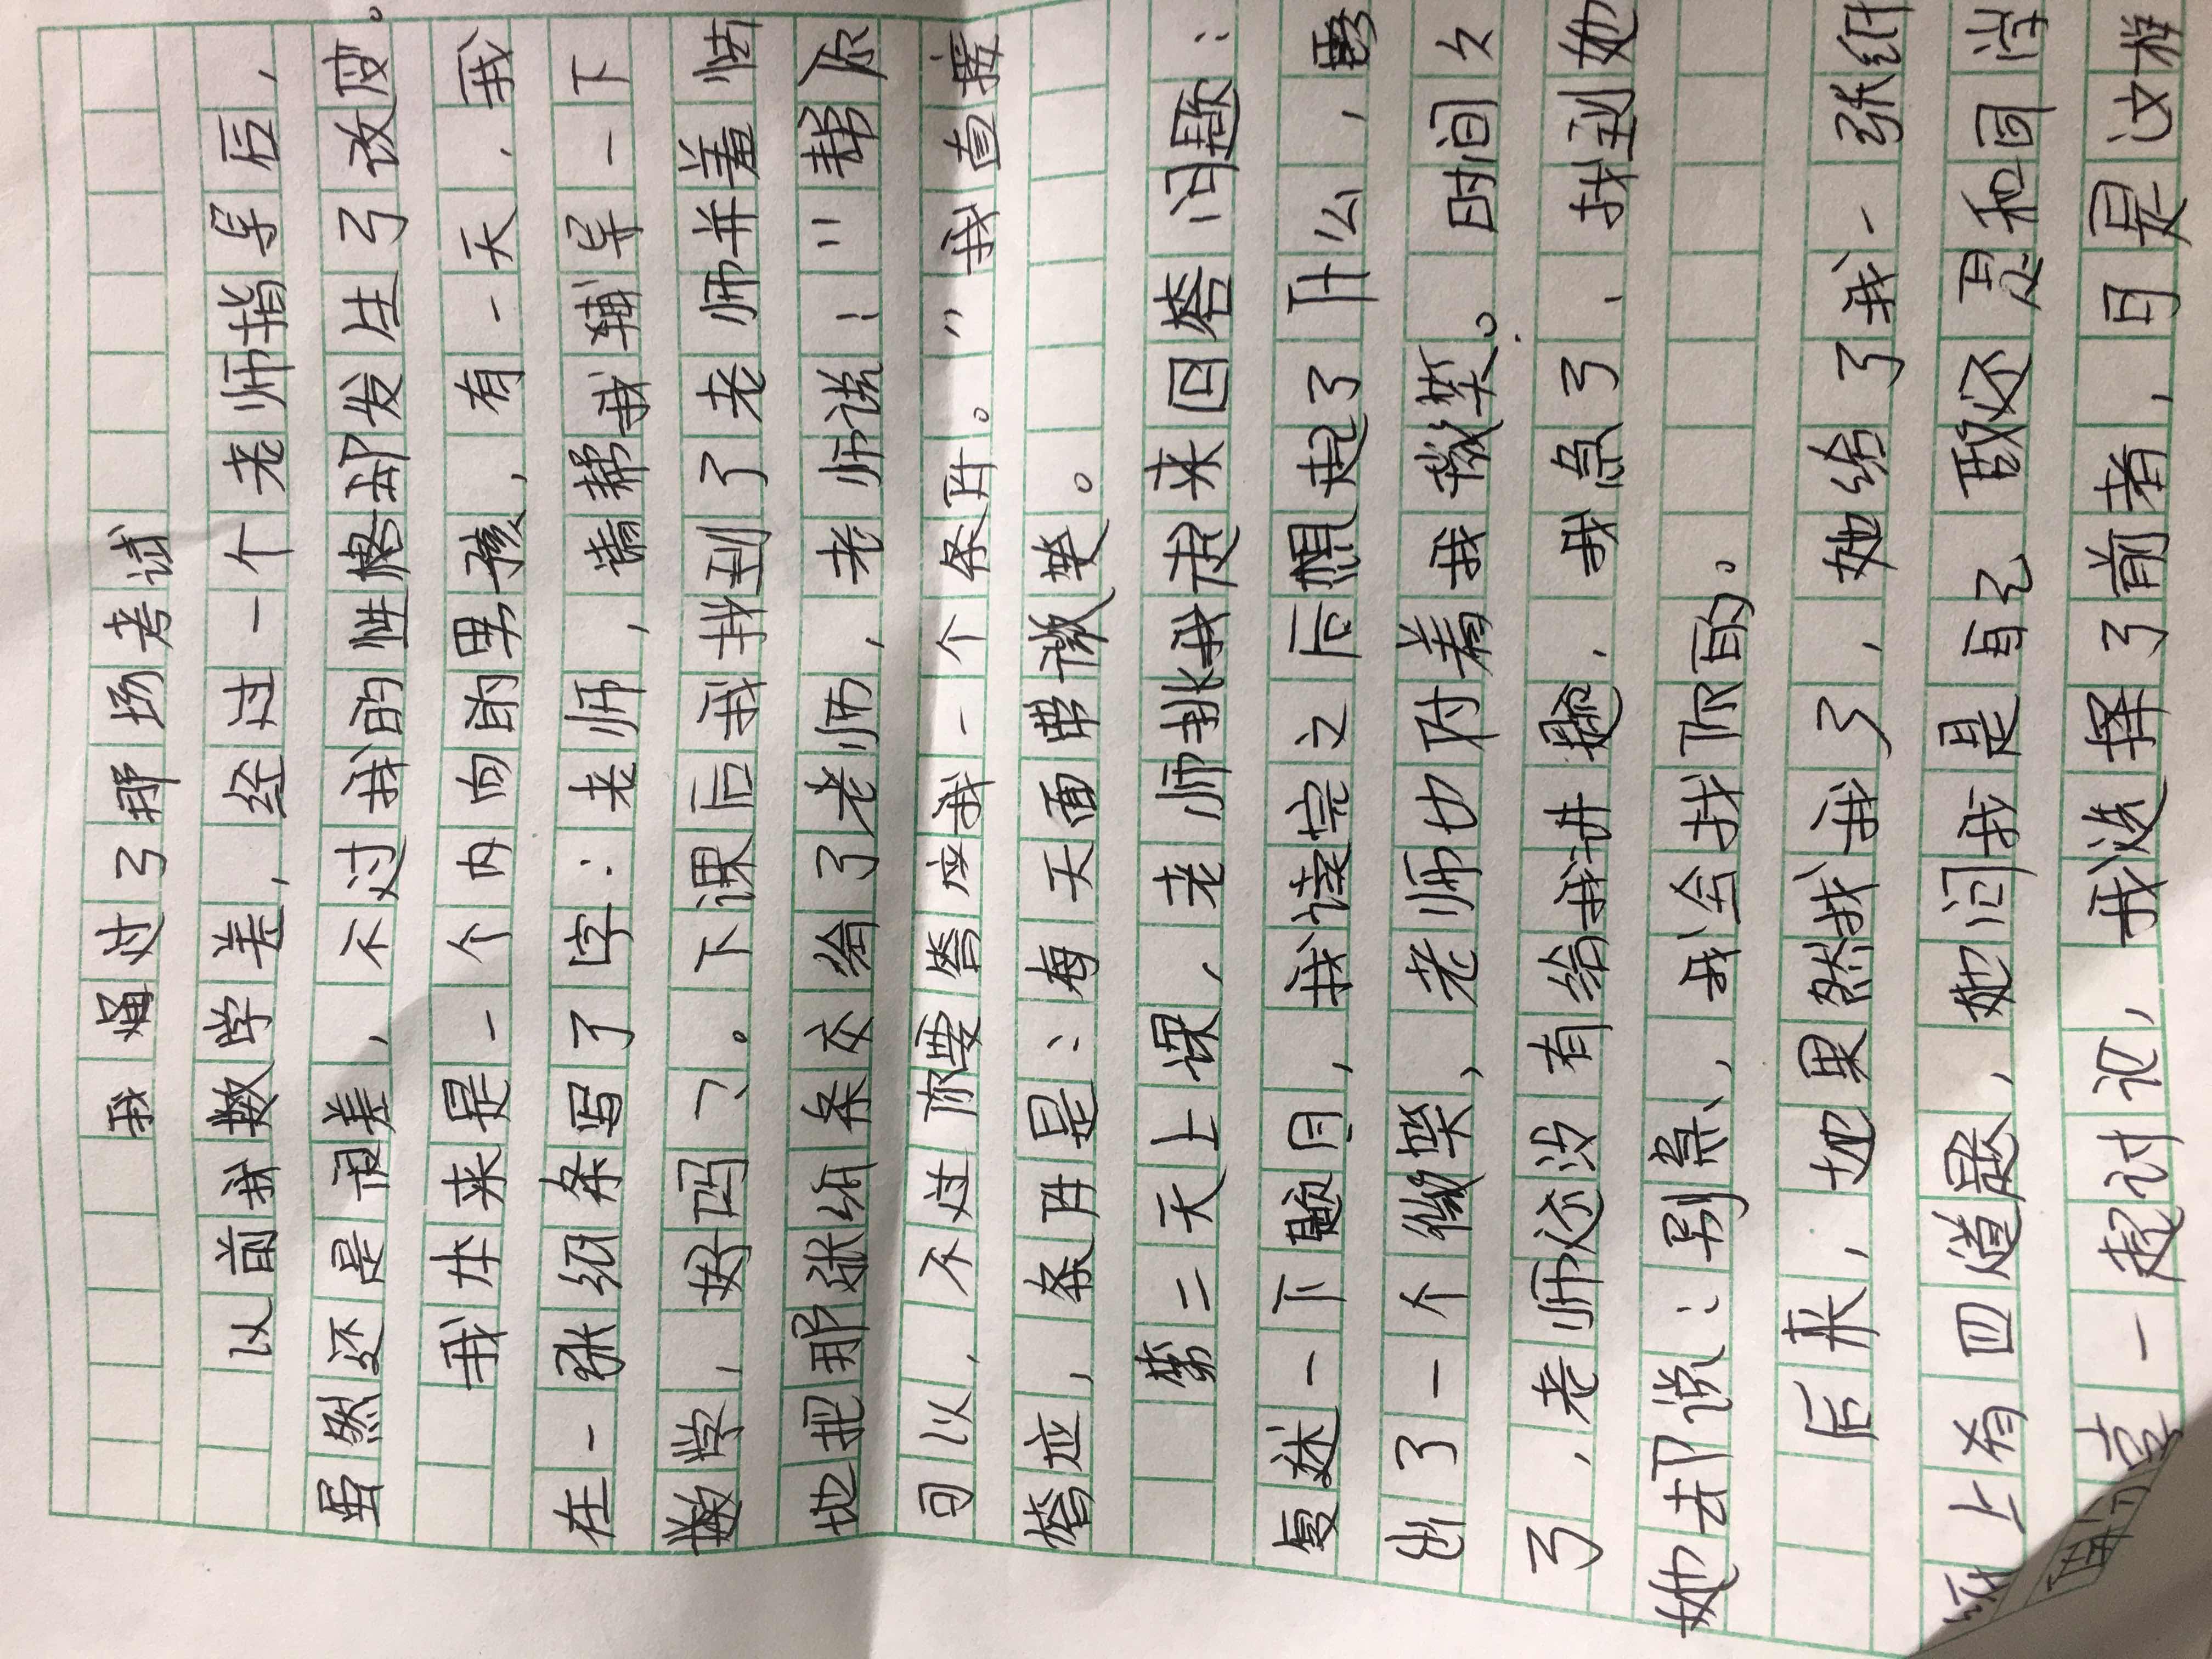 我通过了那场考试
以前我数学差，经过一个老师指导后，
虽然还是很差，不过我的性格却发生了改变。
我本来是一个内向的男孩，有一天，我
在一张纸条写了字：老师，请帮我辅导一下
数学，好吗？。下课后我找到了老师并羞怯
地把那张纸条交给了老师，老师说："帮你
可以，不过你要答应我一个条件。"我直接
答应，条件是：每天面带微笑。
第二天上课，老师挑我起来回答问题：
复述一下题目，我读完之后想起了什么，露
出了一个微笑，老师也对着我微笑。时间久
了，老师还没有给我讲题，我急了，找到她
她去却说：别急，我会找你的。
后来，她果然找我了，她给了我一张纸
纸上有四道题，她问我是自己做还是和同学
一起讨论，我选择了前者，可是这样